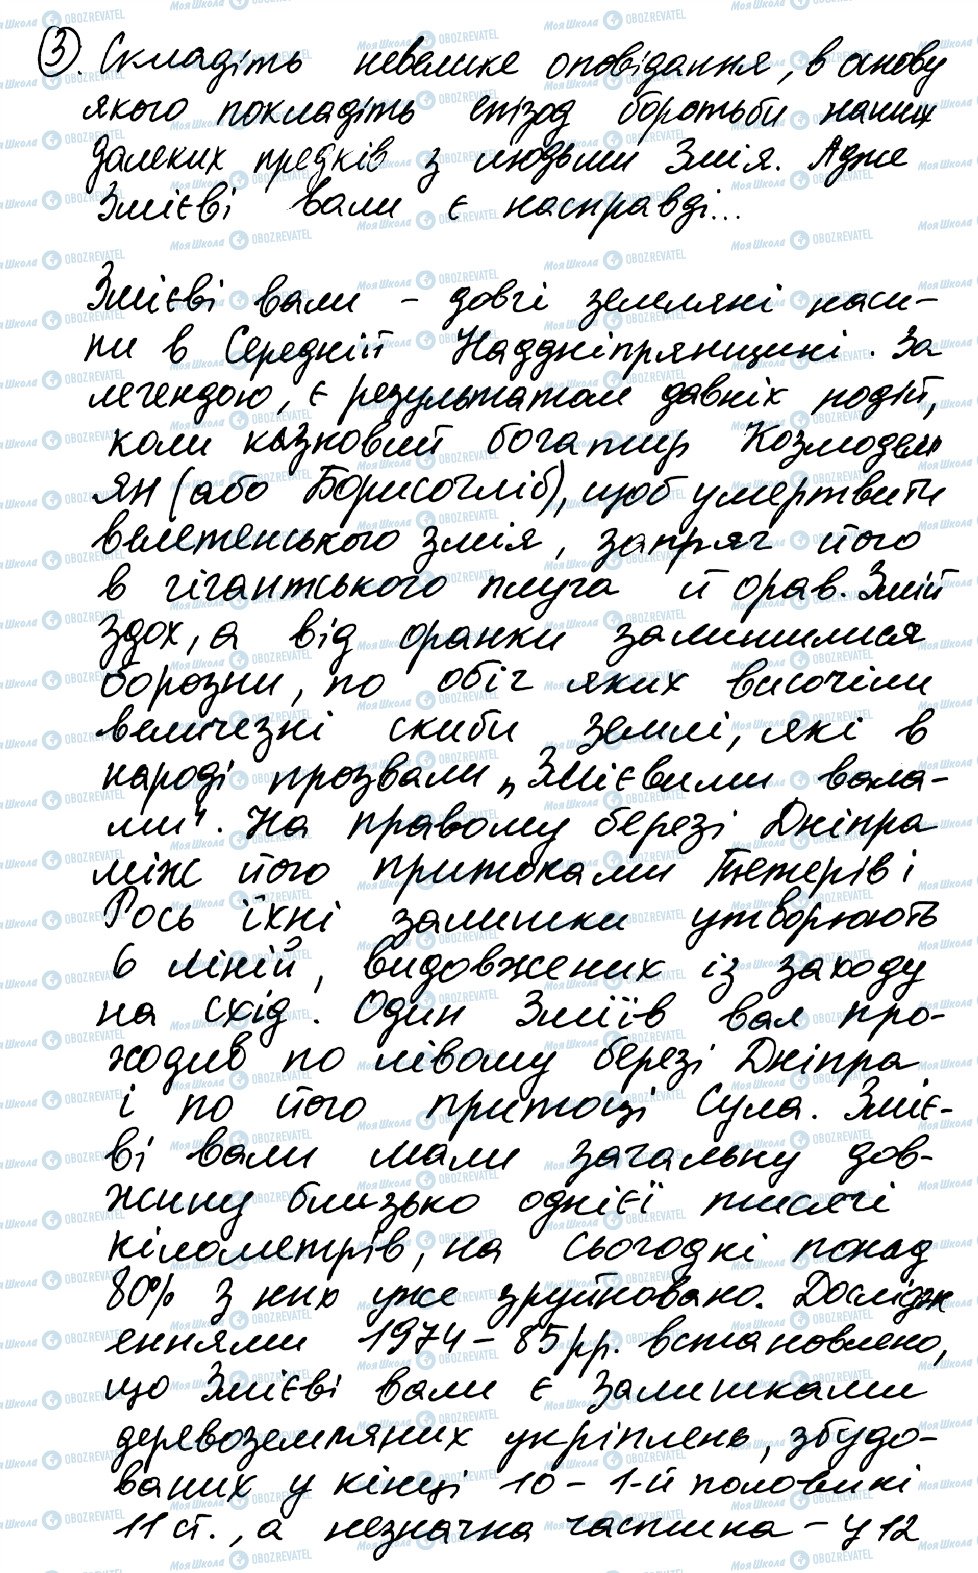 3. Складіть невелике оповідання, в основу
якого покладіть епізод боротьби наших
далеких предків з людьми Змія. Адже
Змієві вали є насправді...
Змієві вали – довгі земляні наси-
пи в Середній Наддніпрянщині. За
легендою, є результатом давніх подій,
коли казковий богатир Козмодем
ян (або Борисогліб), щоб умертвити
велетенського змія, запряг його
в гігантського плуга й орав. Змій
здох, а від оранки залишилися
борозни, по обіч яких височіли
величезні скиби землі, які в
народі прозвали „Змієвими вала-
ми". На правому березі Дніпра
між його притоками Тетерів і
Рось їхні залишки утворюють
6 ліній, видовжених із заходу
на схід. Один Зміїв вал про-
ходив по лівому березі Дніпра
і по його притоці Сула. Зміє-
ві вали мали загальну дов-
жину близько однієї тисячі
кілометрів, на сьогодні понад
80% з них уже зруйновано. Дослідж
еннями 1974 – 85 рр. встановлено,
що Змієві вали є залишками
деревоземляних укріплень, збудо-
ваних у кінці 10 – 1-й половині
11 ст., а незначна частина – у 12